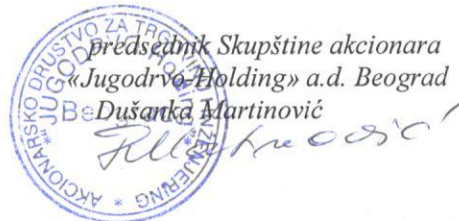 predsednik Skupštine akcionara
«Jugodrvo-Holding» a.d. Beograd
Dušanka Martinović
AKCIONARSKO DRUŠTVO ZA TRGOVINU I INŽENJERING
"JUGODRVO-HOLDING"